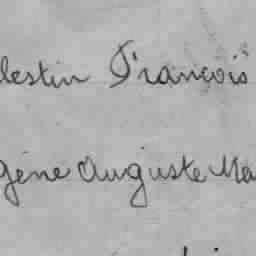 lestin François
gène Auguste Ma